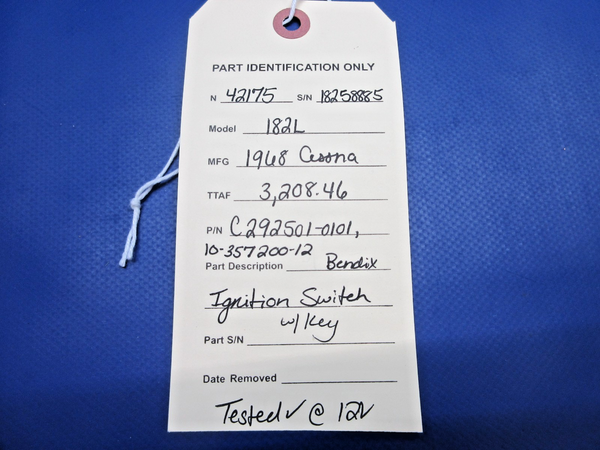 PART IDENTIFICATION ONLY
N 42175 S/N 18258885
Model 182L
MFG 1968 Cessna
TTAF 3,208.46
P/N C292501-0101,
10-357200-12
Part Description Bendix
Ignition Switch
w/ Key
Part S/N
Date Removed
Tested✓ @ 12V